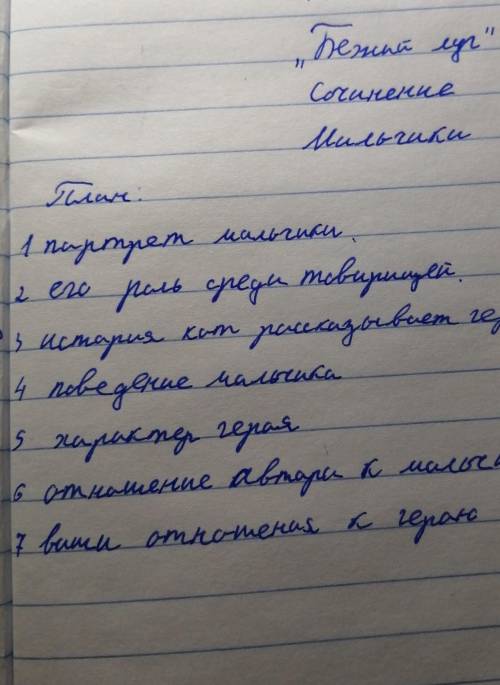 „Бежий луг"
Сочинение
Мальчики
План:
1 партрет мальчика.
2 его роль среди товарищей.
3 история кот рассказывает гер
4 поведение мальчика
5 характер героя
6 отношение автора к мальчи
7 ваши отношения к герою